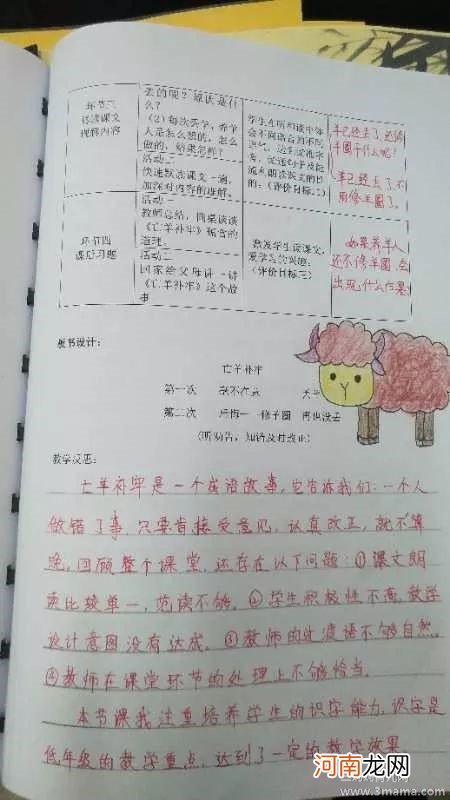 丢的呢？原因是什
么？
（2）每次丢羊，养羊
人是怎么想的，怎么
做的，结果怎样？
活动二
快速默读课文一遍，
加深对内容的理解。
环节三
课文
内容
羊已经丢了，还修
羊圈干什么呢？
羊已经丢了，不
用修羊圈了。
环节四
课后习题
活动一
教师总结，同桌谈谈
《亡羊补牢》蕴含的
道理。
活动二
回家给父母讲一讲
《亡羊补牢》这个故
事
激发学生读课文，
爱学习的兴趣；
（评价目标三）
如果养羊人
还不修羊圈，会
出现什么后果
板书设计：
亡羊补牢
第一次 毫不在意 丢羊
第二次 后悔 修羊圈 再也没丢
（听劝告，知错及时改正）
教学反思：
亡羊补牢是一个成语故事，它告诉我们：一个人
做错了事，只要肯接受意见，认真改正，就不算
晚。回顾整个课堂，还存在以下问题：①课文朗
读比较单一，范读不够。②学生积极性不高，教学
设计意图没有达成。③教师的过渡语不够自然。
④教师在课堂环节的处理上不够恰当。
本节课我注重培养学生的识字能力，识字是
低年级的教学重点，达到了一定的教学效果
河南龙网
www.3mama.com